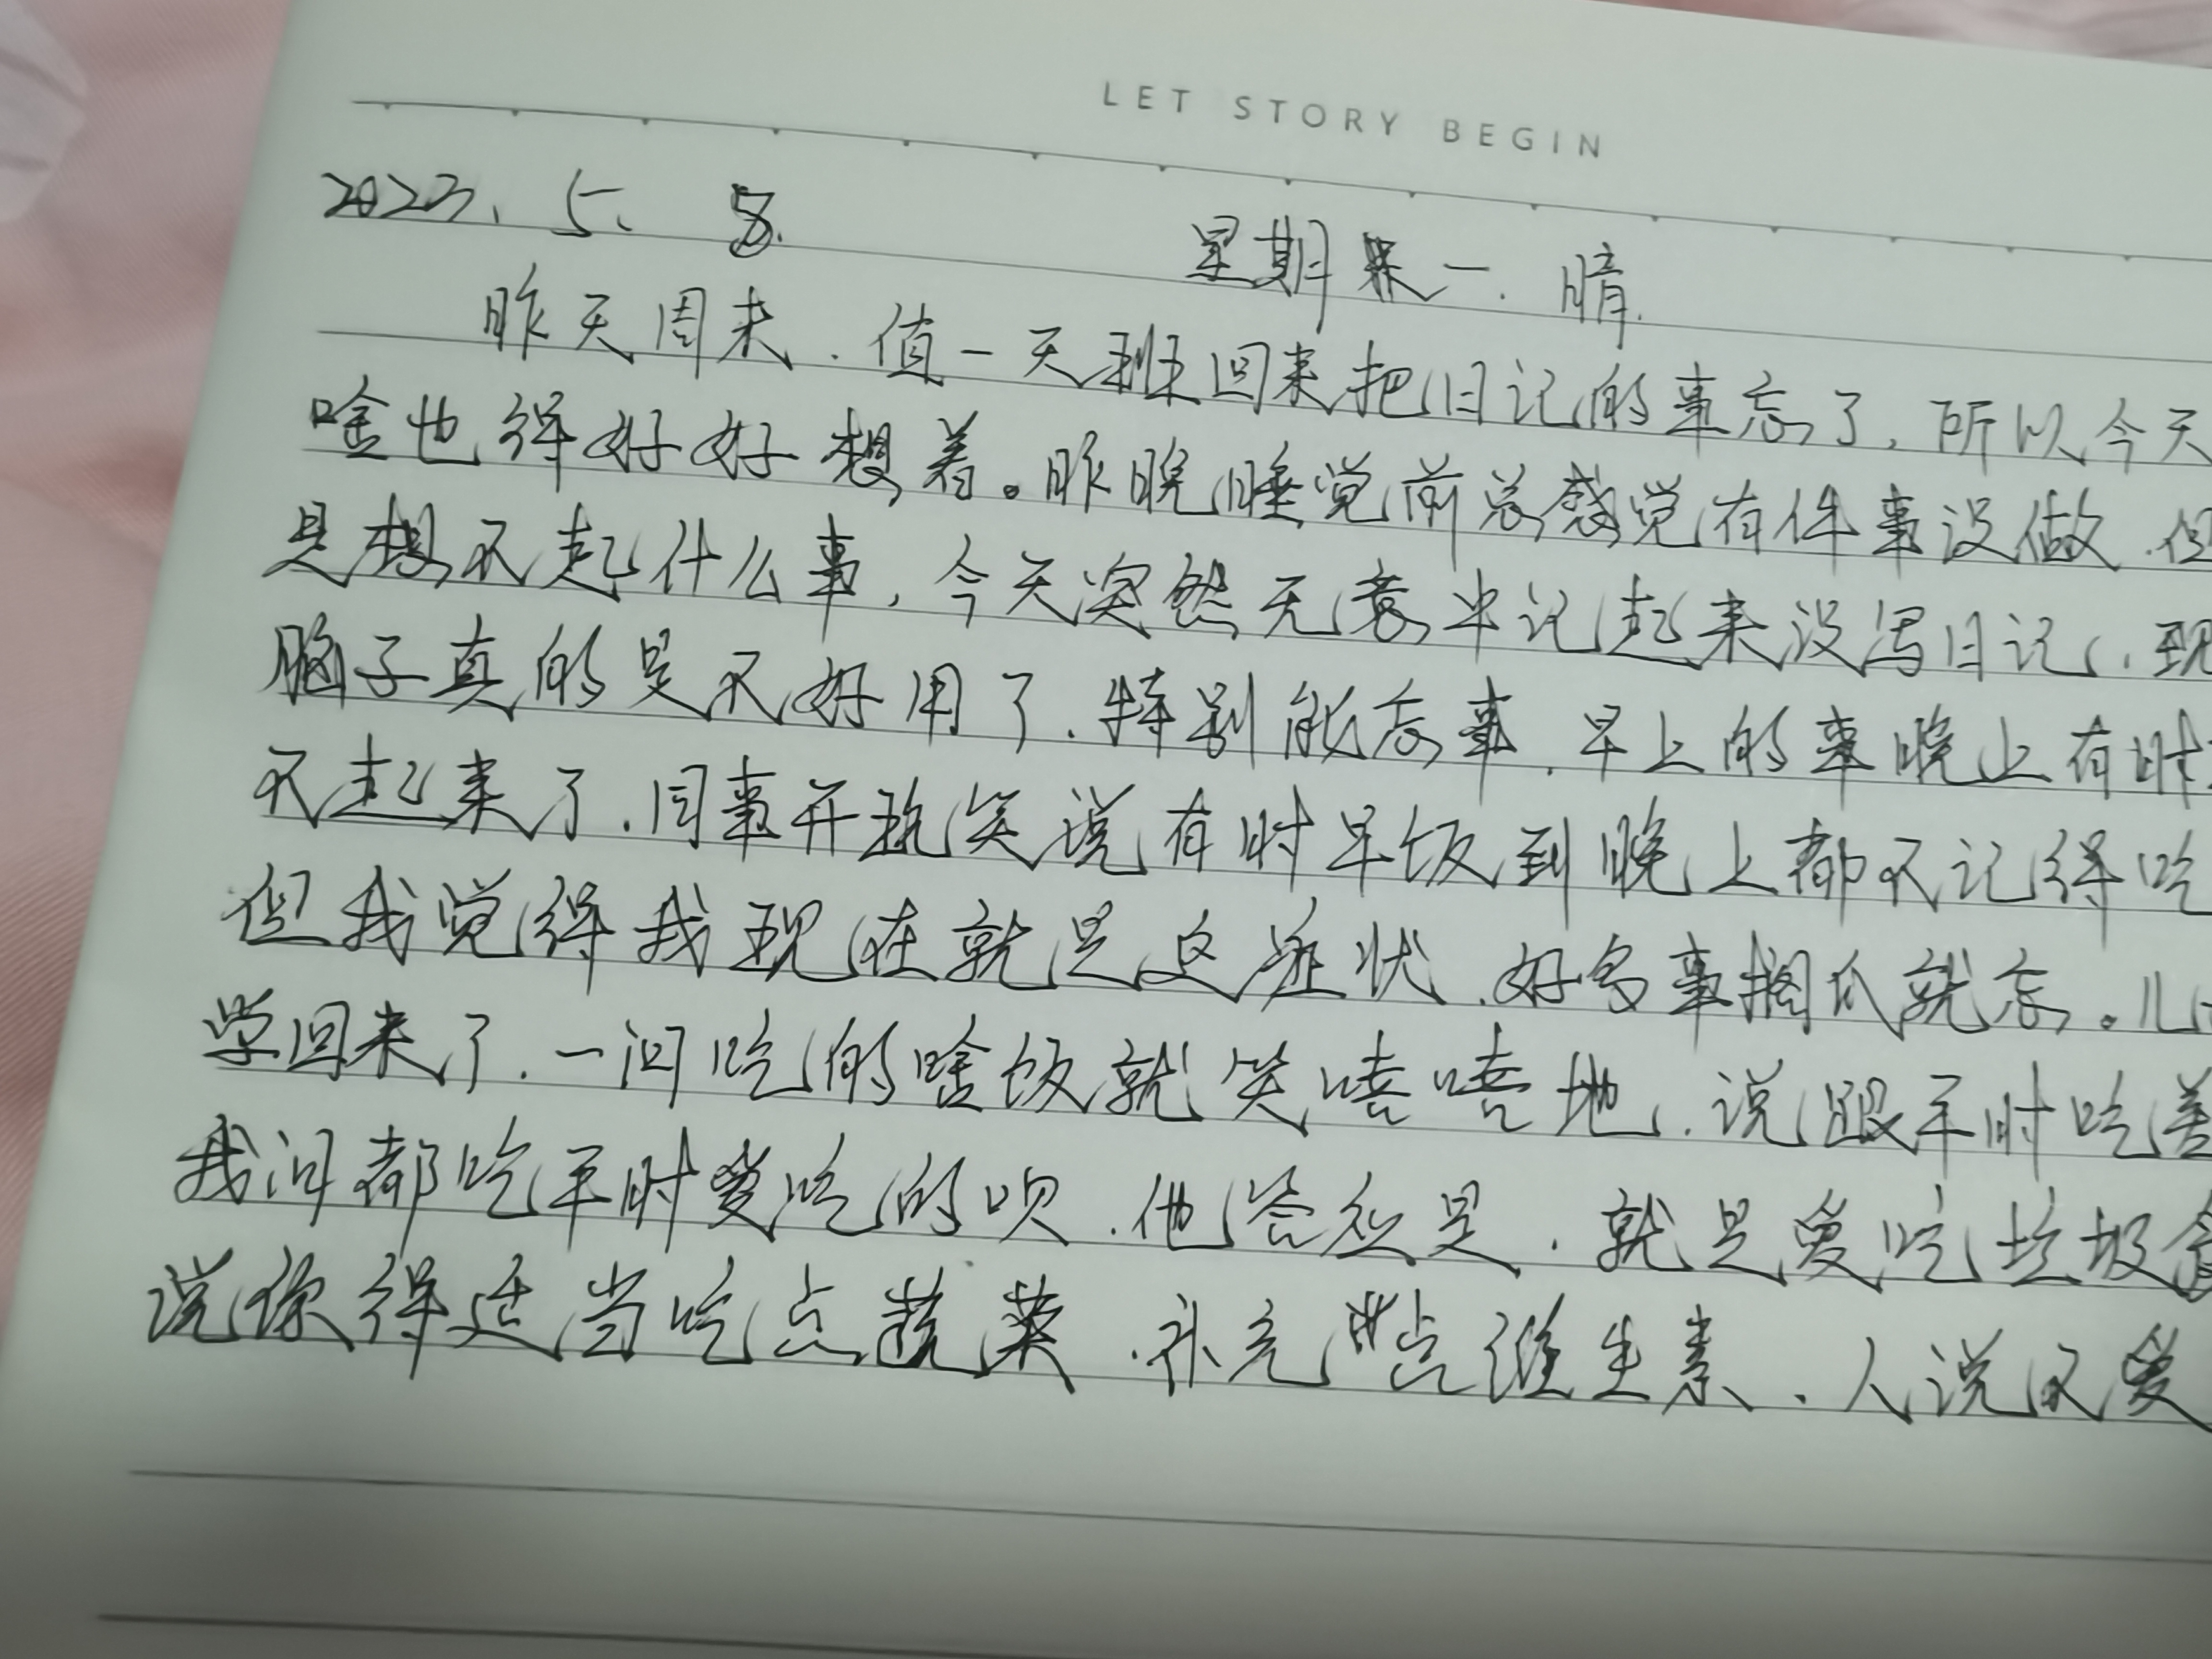 LET STORY BEGIN
2023. 5. 8.
星期一. 晴.
昨天周末. 值一天班回来把日记的事忘了, 所以今天
啥也得好好想着。昨晚睡觉前总感觉有件事没做. 但
是想不起什么事, 今天突然无意中记起来没写日记, 现
脑子真的是不好用了. 特别能忘事. 早上的事晚上有时
不起来了. 同事开玩笑说有时早饭到晚上都不记得吃
但我觉得我现在就是这症状. 好多事搁爪就忘。儿
学回来了. 一问吃的啥饭就笑嘻嘻地. 说跟平时吃差
我问都吃平时爱吃的呗. 他答应是. 就是爱吃垃圾食
说你得适当吃点蔬菜. 补充点维生素. 人说不爱